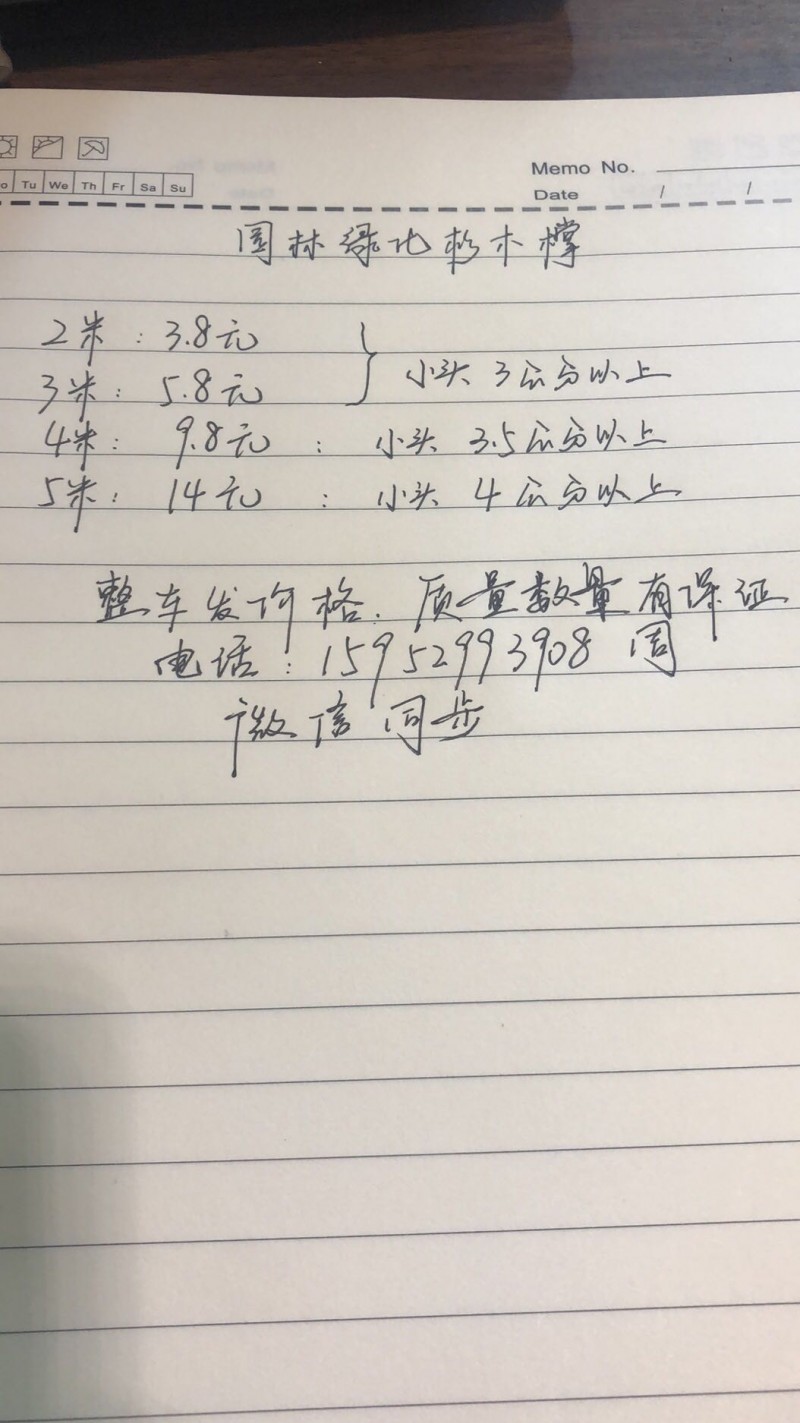 o Tu We Th Fr Sa Su
Memo No.
Date / /
园林绿化杉木撑
2米：3.8元
3米：5.8元
小头 3公分以上
4米：9.8元：小头 3.5公分以上
5米：14元：小头 4公分以上
整车发价格.质量数量有保证
电话：15952993908 周
微信同步